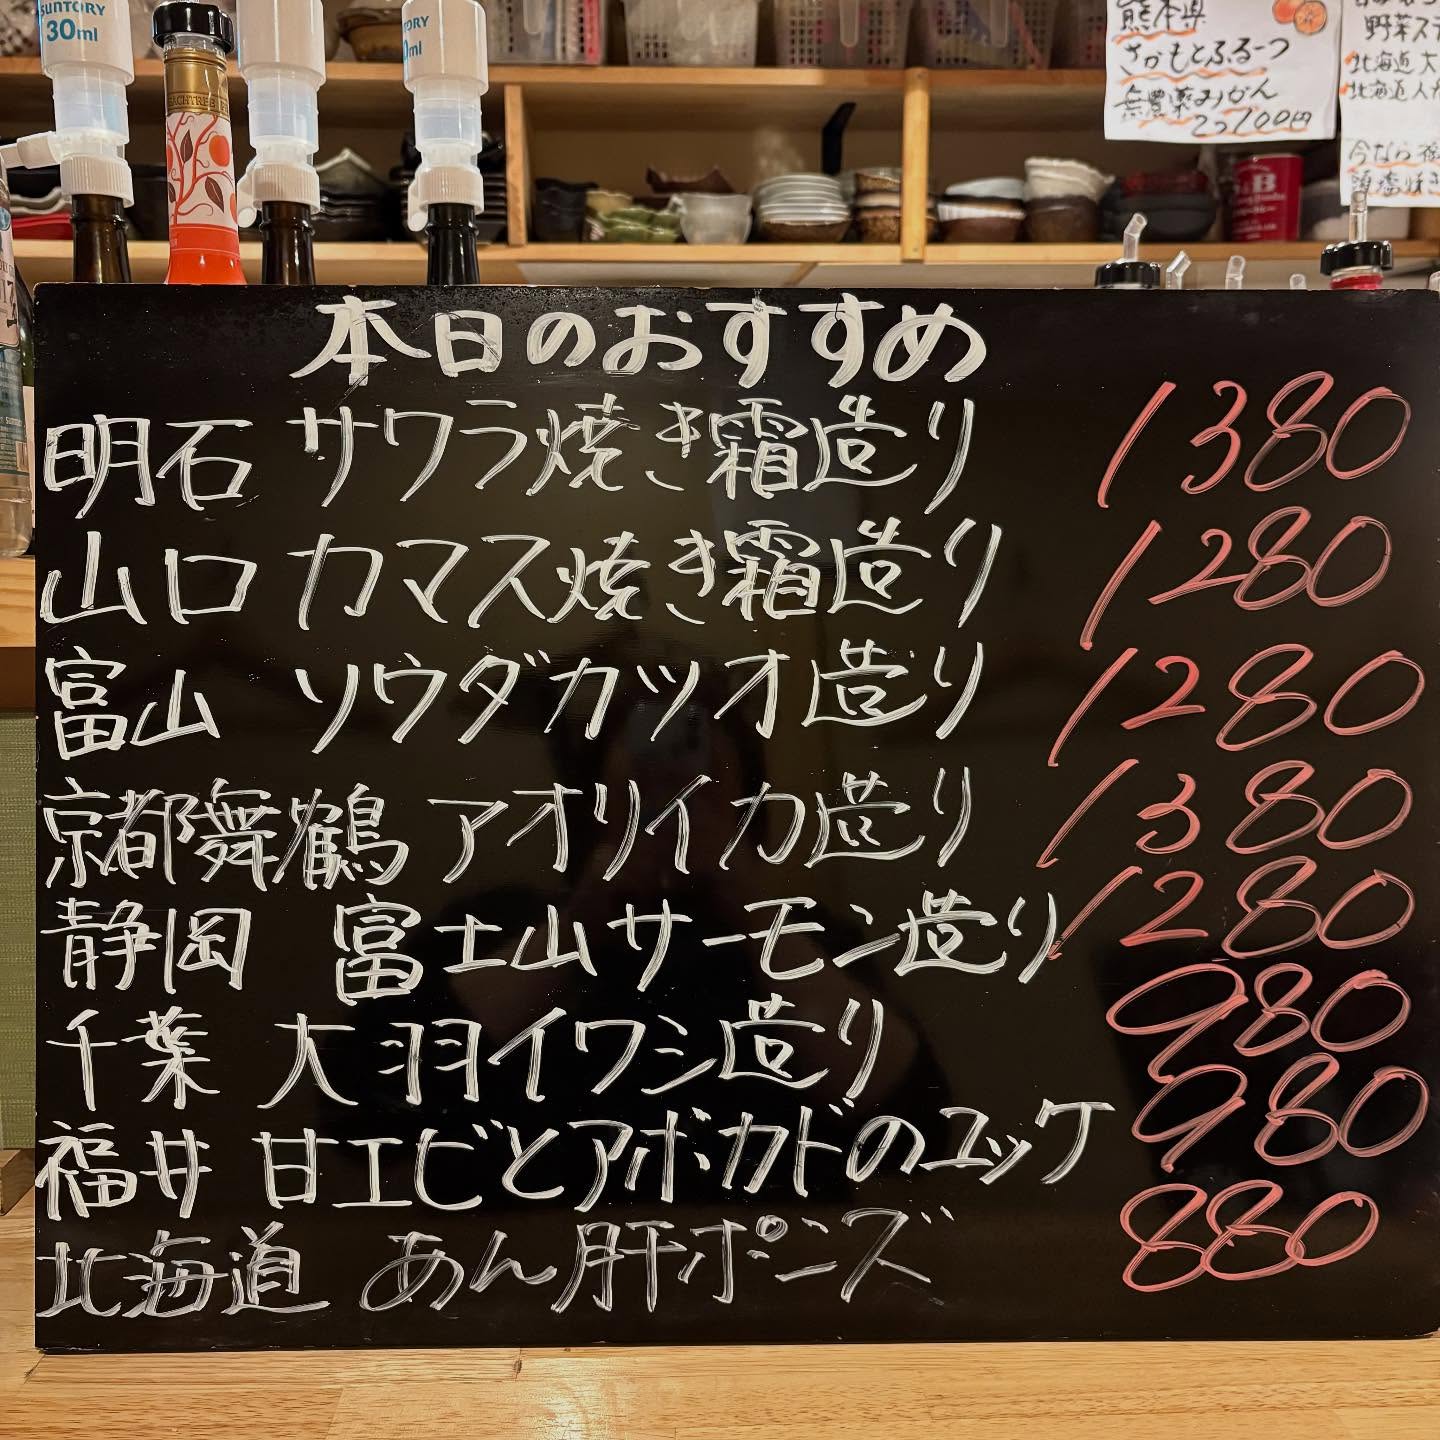 SUNTORY
30ml
熊本県
さかもとふるーつ
無農薬みかん
野菜ス
北海道大
北海道
今なら
本日のおすすめ
明石 サワラ焼き霜造り 1380
山口 カマス焼き霜造り 1280
富山 ソウダカツオ造り 1280
京都舞鶴 アオリイカ造り 1380
静岡 富士山サーモン造り 1280
千葉 大羽イワシ造り 980
福井 甘エビとアボカドのユッケ 980
北海道 あん肝ポンズ 880